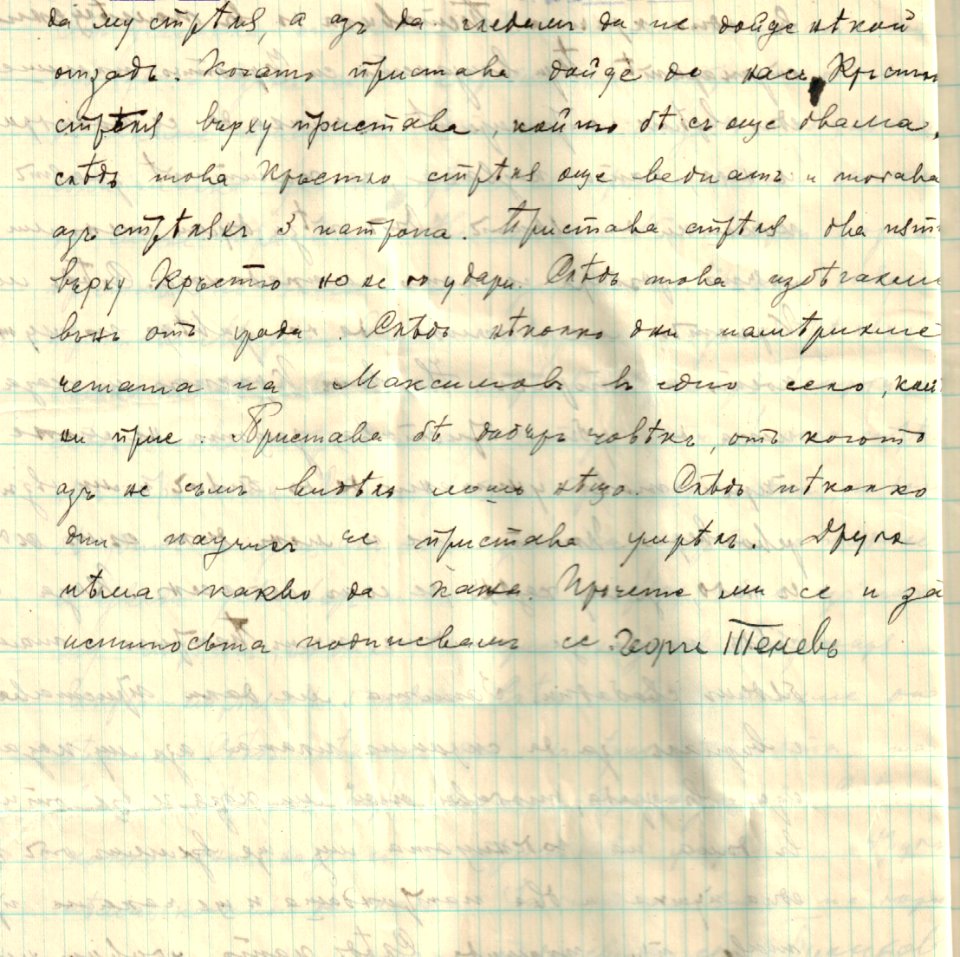 да му стрѣля, а азъ да гледамъ да не дойде нѣкой
отзадъ. Когато пристава дойде до насъ, Кръстю
стрѣля върху пристава, който бѣ съ още двама,
слѣдъ това Кръстю стрѣля още веднатъ и тогава
азъ стрѣляхъ 3 патрона. Пристава стрѣля два пят
върху Кръстю но не го удари. Слѣдъ това избѣгахме
вънъ отъ града. Слѣдъ нѣколко дни намѣрихме
четата на Максимовъ въ едно село, кой
ни прие. Пристава бѣ добъръ човѣкъ, отъ когото
азъ не съмъ видѣлъ лошо нѣщо. Слѣдъ нѣколко
дни научихъ че пристава умрѣлъ. Друго
нѣма какво да кажа. Прочете ми се и за
истиностьта подписвамъ се. Георги Теневъ